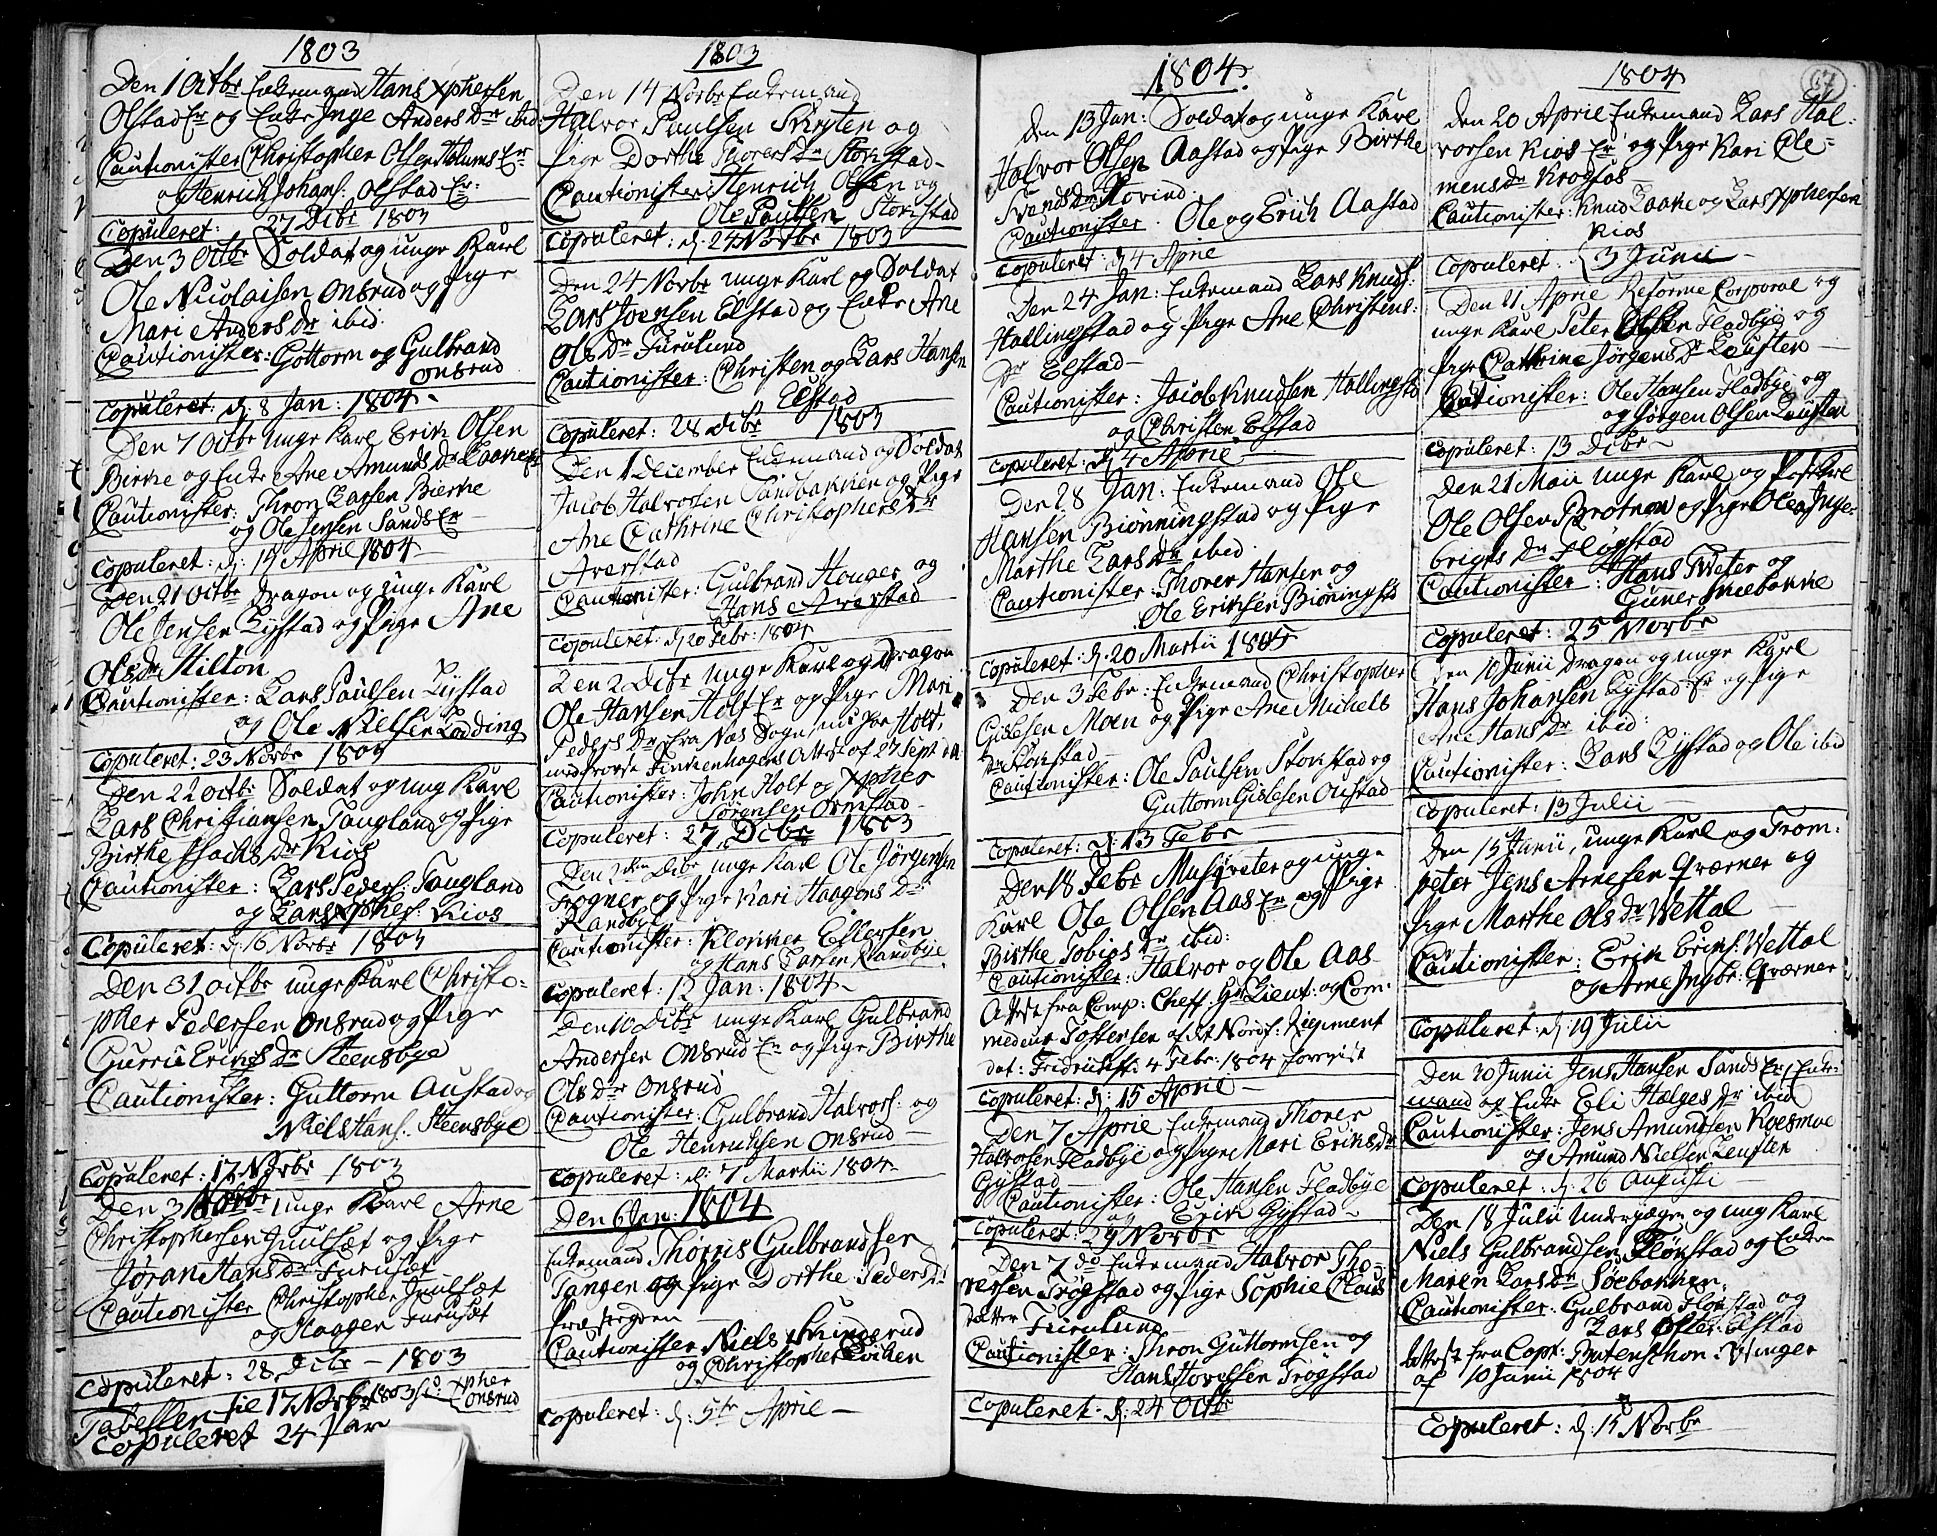 1803
Den 1 Octbr Enkemand Hans Xphersen
Olstad Er og Enke Inge Anders Dr ibid:
Cautionister Christopher Olsen Holums Er
og Henrich Johans: Olstad Er:
Copuleret: 27 Dcbr 1803
Den 3 Octbr Soldat og unge Karl
Ole Nicolaisen Onsrud og Pige
Mari Anders Dr ibid.
Cautionister: Gottorm og Gulbrand
Onsrud
Copuleret: d: 8 Jan: 1804
Den 7 Octbr unge Karl Erik Olsen
Birke og Enke Ane Amunds Dr Laake Er
Cautionister: Thron Larsen Bierke
og Ole Jensen Sands Er
Copuleret: d: 14 April 1804
Den 21 Octbr Dragon og unge Karl
Ole Jensen Lystad og Pige Ane
Ols Dr Hilton
Cautionister: Lars Paulsen Lystad
og Ole Nielsen Lodding
Copuleret: 23 Novbr 1803
Den 22 Octbr Soldat og ung Karl
Lars Christiansen Taugland og Pige
Birthe Isachs Dr Kios
Cautionister: Lars Peders: Taugland
og Lars Xphers: Kios
Copuleret: d: 16 Novbr 1803
Den 31 Octbr unge Karl Christo-
pher Pedersen Onsrud og Pige
Gurrie Eriks Dr Steensbye
Cautionister: Guttorm Austad og
Niels Hans: Steensbye
Copuleret: 17 Novbr 1803
Den 3 Novbr unge Karl Arne
Christophersen Juulset og Pige
Jøran Hans Dr Furuset
Cautionister Christopher Juulset
og Haagen Furuset
Copuleret: 28 Dcbr - 1803
Tabellen til 17 Novbr 1803 Xpher
Onsrud
Copuleret 24 Par
1803
Den 14 Novbr Enkemand
Halvor Paulsen Kirsten og
Pige Dorthe Thorers Dr Storstad
Cautionister: Henrich Olsen og
Ole Paulsen Storstad
Copuleret: d: 24 Novbr 1803
Den 24 Novbr unge Karl og Soldat
Lars Joensen Elstad og Enke Ane
Ols Dr Furulund
Cautionister: Christen og Lars Hansen
Elstad
Copuleret: 28 Dcbr 1803
Den 1 December Enkemand og Soldat
Jacob Halvorsen Sandbakken og Pige
Ane Cathrine Christophers Dr
Averstad
Cautionister: Gulbrand Houger og
Hans Averstad
Copuleret: d: 20 Febr: 1804
Den 2 Dcbr unge Karl og Dragon
Ole Hansen Holt Er og Pige Mari
Peders Dr fra Næs Sogn, nu paa Holt,
med Provst Finkenhagens Attest af 27 Sept:
Cautionister: John Holt og Xpher
Jørgensen Ormstad
Copuleret: 27 Dcbr 1803
Den 2den Dcbr unge Karl Ole Jørgensen
Frogner og Pige Kari Haagens Dr
Randbye
Cautionister: Klokker Ellersen
og Hans Larsen Randbye
Copuleret: 12 Jan: 1804
Den 10 Dcbr unge Karl Gulbrand
Andersen Onsrud Er og Pige Birthe
Ols Dr Onsrud
Cautionister: Gulbrand Halvors: og
Ole Henrichsen Onsrud
Copuleret: d: 7 Martii 1804
Den 6 Jan: 1804
Enkemand Thorris Gulbrandsen
Tangen og Pige Dorthe Peders Dr
Præstegren
Cautionister Niels Kringsrud
og Christopher Eviken
Copuleret: d: 5te April
1804
Den 13 Jan: Soldat og unge Karl
Halvor Olsen Aastad og Pige Birthe
Svends Dr Hovind
Cautionister Ole og Erich Aastad
Copuleret: d: 4 April
Den 24 Jan: Enkemand Lars Knuds:
Hallingstad og Pige Ane Christens:
Dr Elstad
Cautionister: Jacob Knudsen Hallingstd
og Christen Elstad
Copuleret: d: 4 April
Den 28 Jan: Enkemand Ole
Hansen Biønningstad og Pige
Marthe Lars Dr ibid
Cautionister: Thorer Hansen og
Ole Eriksen Bioningstd
Copuleret: d: 20 Martii 1805
Den 3 Febr: Enkemand Christopher
Gislesen Moen og Pige Ane Michels
Dr Storstad
Cautionister: Ole Paulsen Storstad og
Guttorm Gislesen Oustad
Copuleret: d: 13 Febr
Den 18 Febr Musqveter og unge
Karl Ole Olsen Aas Er og Pige
Birthe Tobies Dr ibid:
Cautionister: Halvor og Ole Aas
Attest fra Comp: Cheff. Gd Lieut: og Com-
medeur Tostensen af det Nordf: Regiment
dat: Fridrichst: 4 Febr: 1804 foreviist
Copuleret: d: 15 April
Den 7 April Enkemand Thorer
Halvorsen Fladbye og Pige Mari Eriks Dr
Gystad
Cautionister: Ole Hansen Fladbye
og Erik Gystad
Copuleret: 29 Novbr
Den 7 do Enkemand Halvor Tho-
resen Trøgstad og Pige Sophie Claus
datter Furulund
Cautionister: Thron Guttormsen og
Hans Tovelsen Trøgstad
Copuleret: d: 24 Octbr
1804
67
Den 20 April Enkemand Lars Hal-
vorsen Kios Er og Pige Kari Cle-
mens Dr Krogfos
Cautionister: Knud Laake og Lars Xphersen
Kios
Copuleret: d 3 Junii
Den 21 April Reforme Corporal og
unge Karl Peter Olsen Fladbye og
Pige Cathrine Jørgens Dr Leusten
Cautionister: Ole Hansen Fladbye og
og Jørgen Olsen Leusten
Copuleret: 13 Dcbr
Den 21 Maii unge Karl og Postkarl
Ole Olsen Brotnov og Pige Olea Inge-
brigts Dr Flogstad
Cautionister: Hans Tveter og
Guner Smebakke
Copuleret: 25 Novbr
Den 10 Junii Dragon og unge Karl
Hans Johansen Lystad Er og Pige
Ane Hans Dr ibid:
Cautionister: Lars Lystad og Ole ibid
Copuleret: 13 Julii
Den 15 Junii, unge Karl og Trom-
peter Jens Arnesen Qværner og
Pige Marthe Ols Dr Wettal
Cautionister: Erik Eriks: Wettal
og Arne Ingbr: Qværner
Copuleret: d: 19 Julii
Den 20 Junii Jens Hansen Sands Er, Enke-
mand og Enke Eli Helges Dr ibid
Cautionister: Jens Amundsen Koesmoe
og Amund Nielsen Leusten
Copuleret: d: 26 Augusti
Den 18 Julii Underjæger og ung Karl
Niels Gulbrandsen Flønstad og Enken
Maren Lars Dr Søebakken
Cautionister: Gulbrand Flønstad og
Lars Elstad
Attest fra Capt: Butenschon: Winger
af 10 Junii 1804
Copuleret: d: 15 Novbr